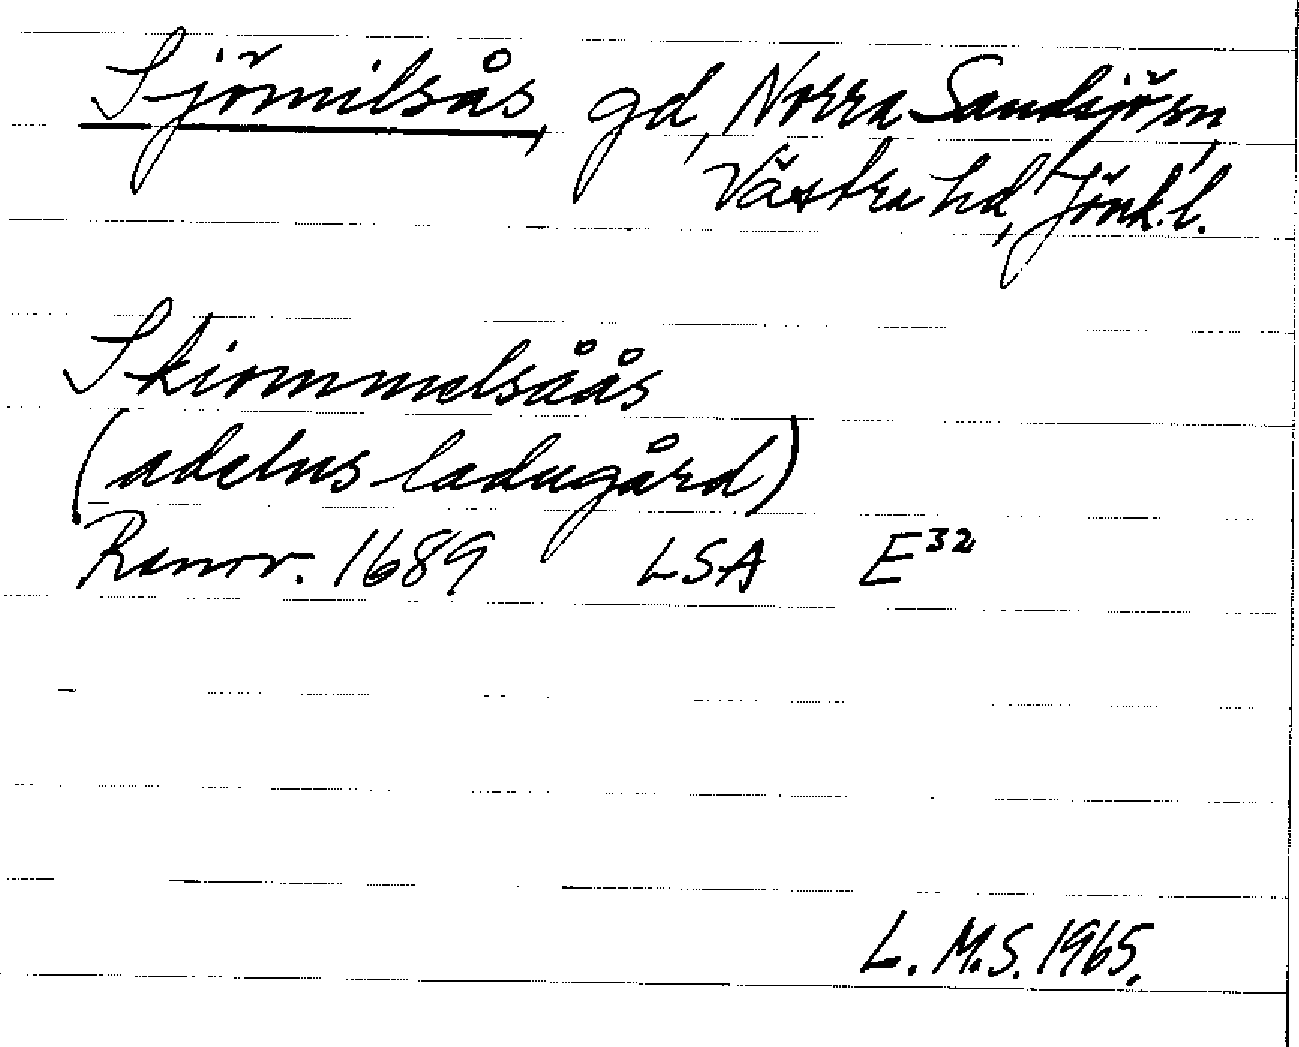 Sjömilsås, gd, Norra Sandsjö sn,
Västra hd, Jönk.l.
Skiommelsåås
(adelns ladugård)
Ranov. 1689 LSA E³²
L. M. S. 1965.